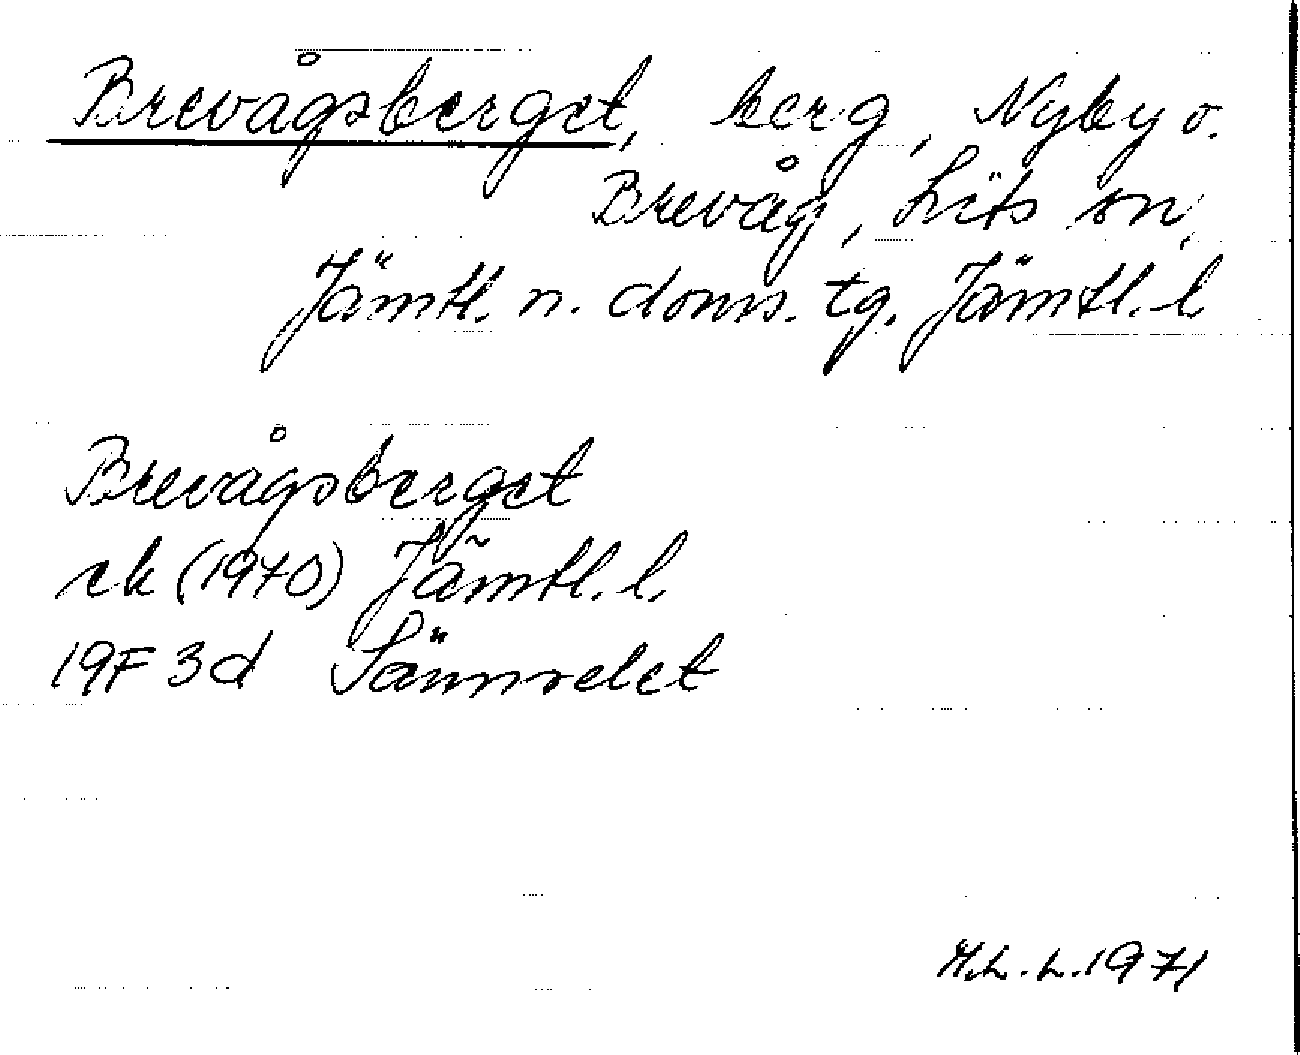 Brevågsberget, berg, Nyby o.
Brevåg, Lits sn,
Jämtl. n. doms. tg. Jämtl. l
Brevågsberget
ek (1970) Jämtl. l.
19F 3d Sännselet
H.L. L. 1971